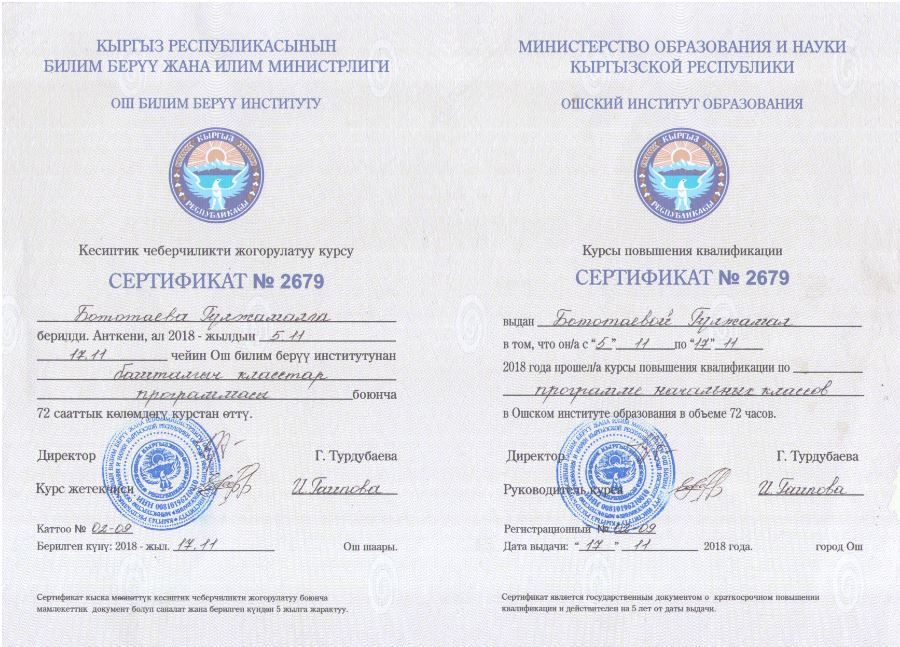 КЫРГЫЗ РЕСПУБЛИКАСЫНЫН
БИЛИМ БЕРҮҮ ЖАНА ИЛИМ МИНИСТРЛИГИ
ОШ БИЛИМ БЕРҮҮ ИНСТИТУТУ
КЫРГЫЗ
РЕСПУБЛИКАСЫ
Кесиптик чеберчиликти жогорулатуу курсу
СЕРТИФИКАТ № 2679
Бототаева Гулжамалга
берилди. Анткени, ал 2018 - жылдын 5.11
17.11 чейин Ош билим берүү институтунан
башталгыч класстар
программасы боюнча
72 сааттык көлөмдөгү курстан өттү.
Директор Г. Турдубаева
Курс жетекчиси И Гаипова
Каттоо № 02-09
Берилген күнү: 2018 - жыл. 17.11 Ош шаары.
Сертификат кыска мөөнөттүк кесиптик чеберчиликти жогорулатуу боюнча
мамлекеттик документ болуп саналат жана берилген күндөн 5 жылга жарактуу.
МИНИСТЕРСТВО ОБРАЗОВАНИЯ И НАУКИ
КЫРГЫЗСКОЙ РЕСПУБЛИКИ
ОШСКИЙ ИНСТИТУТ ОБРАЗОВАНИЯ
КЫРГЫЗ
РЕСПУБЛИКАСЫ
Курсы повышения квалификации
СЕРТИФИКАТ № 2679
выдан Бототаевой Гулжамал
в том, что он/а с “5” 11 по “17” 11
2018 года прошел/а курсы повышения квалификации по
программе начальных классов
в Ошском институте образования в объеме 72 часов.
Директор Г. Турдубаева
Руководитель курса И. Гаипова
Регистрационный № 02-09
Дата выдачи: “17” 11 2018 года. город Ош
Сертификат является государственным документом о краткосрочном повышении
квалификации и действителен на 5 лет от даты выдачи.